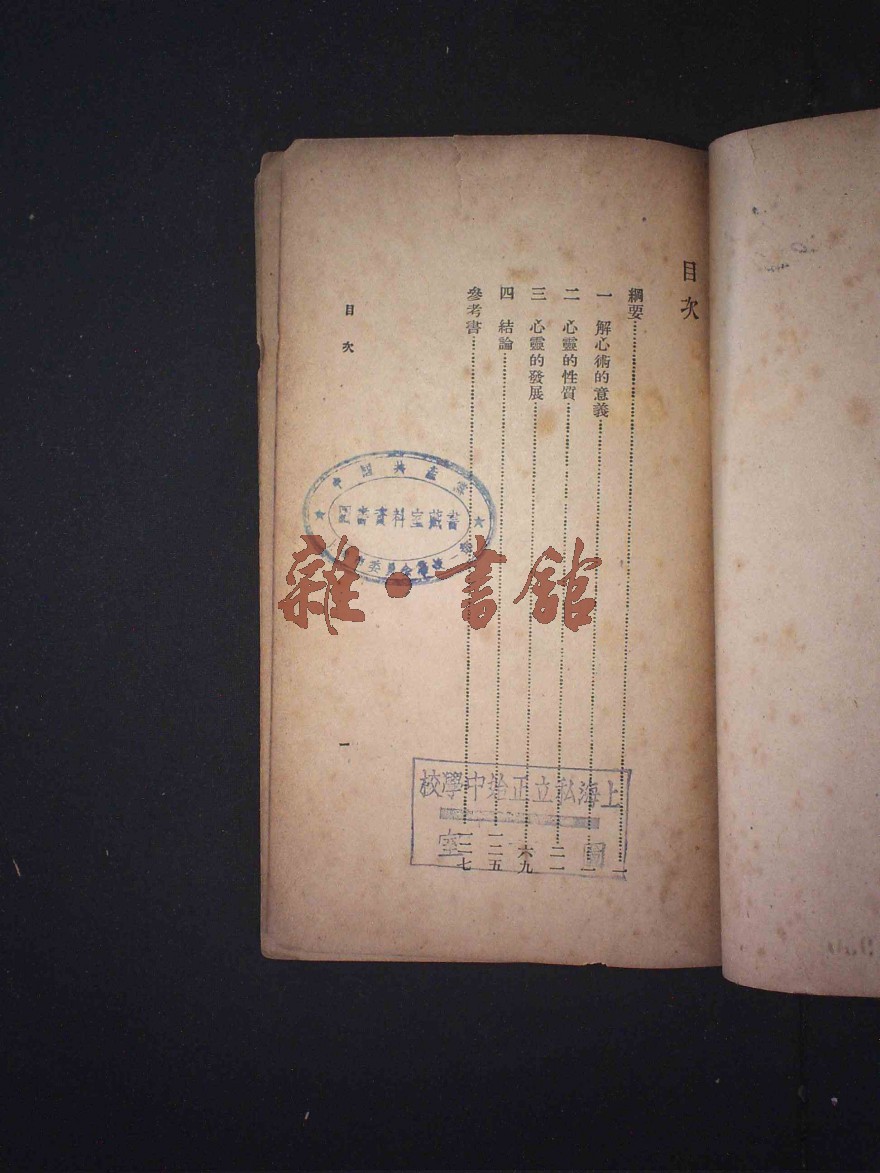 目次
綱要……一
一 解心術的意義……一
二 心靈的性質……二一
三 心靈的發展……六九
四 結論……一二五
參考書……一三七
目次
一
中國共產黨
圖書資料室藏書
委員會
雜·書館
上海私立正始中學校
圖 室